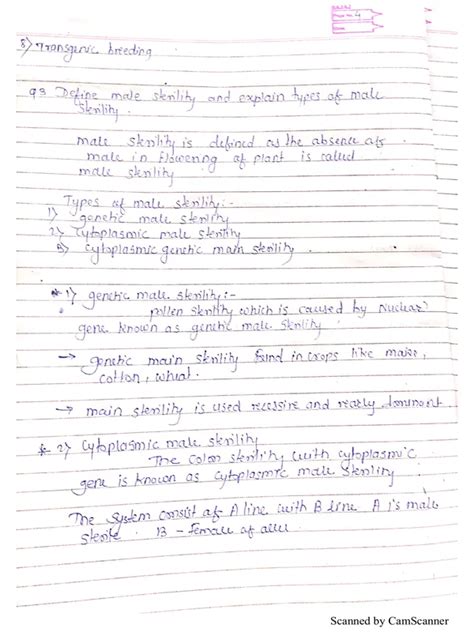 8) Transgenic breeding
Q3 Define male sterility and explain types of male
sterility.
male sterility is defined as the absence of
male in flowering of plant is called
male sterility
Types of male sterility:-
1) genetic male sterility
2) Cytoplasmic male sterility
3) Cytoplasmic genetic main sterility.
1) genetic male sterility:-
pollen sterility which is caused by Nuclear
gene known as genetic male sterility
→ genetic main sterility found in crops like maize,
cotton, wheat.
→ main sterility is used recessive and dominant
2) Cytoplasmic male sterility
The sterility with cytoplasmic
gene is known as cytoplasmic male sterility
The system consist of A line with B line A is male
sterile B - female of
Scanned by CamScanner